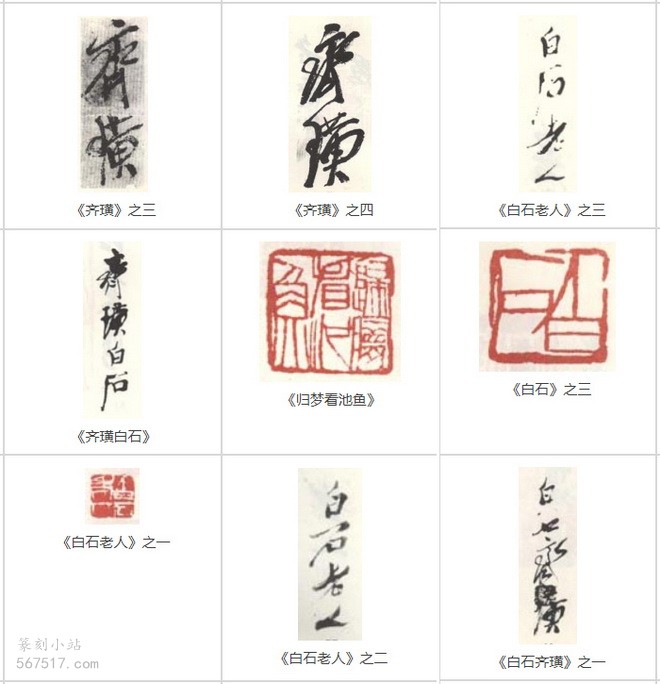 齊
璜
《齐璜》之三
齊
璜
《齐璜》之四
白
石
老
人
《白石老人》之三
齊
璜
白
石
《齐璜白石》
歸夢
看池
魚
《归梦看池鱼》
白
石
《白石》之三
《白石老人》之一
白
石
老
人
《白石老人》之二
白
石
齊
璜
《白石齐璜》之一
篆刻小站
567517.com